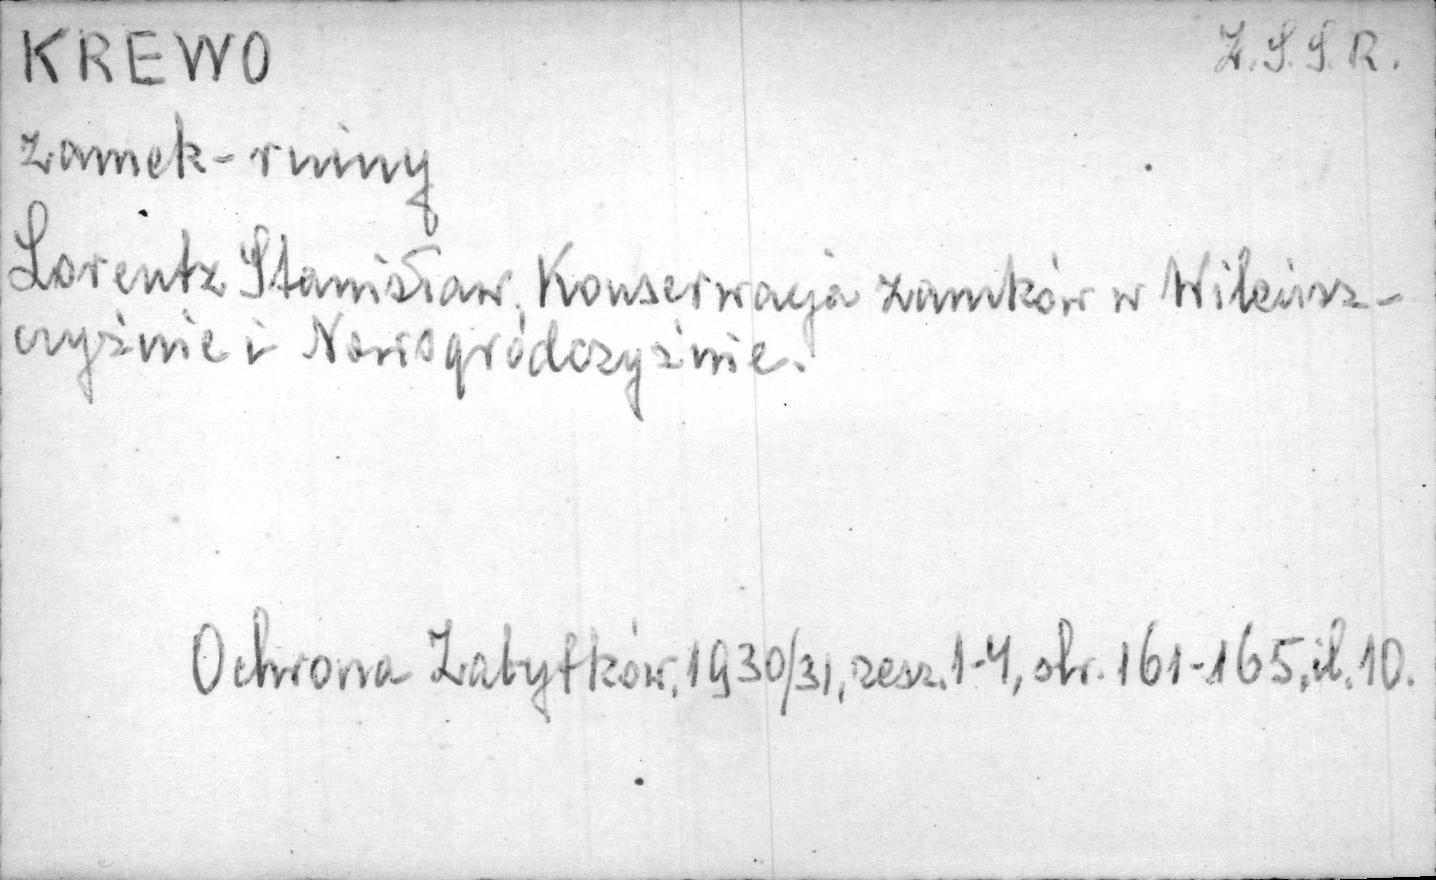 KREWO
Z.S.S.R.
zamek - ruiny
Lorentz Stanisław, Konserwacja zamków w Wileńsz-
czyźnie i Nowogródczyźnie.
Ochrona Zabytków, 1930/31, zesz. 1-4, str. 161-165, il. 10.